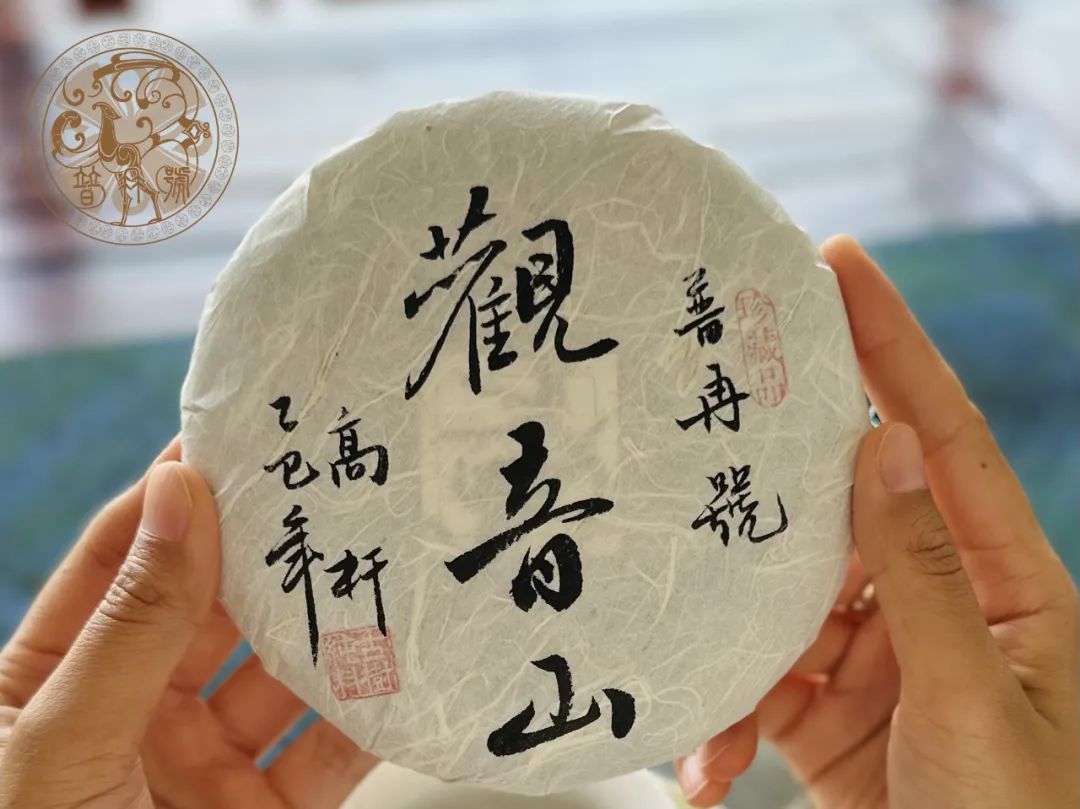 普號
觀音山
普再號
珍藏品
高杆
乙巳年